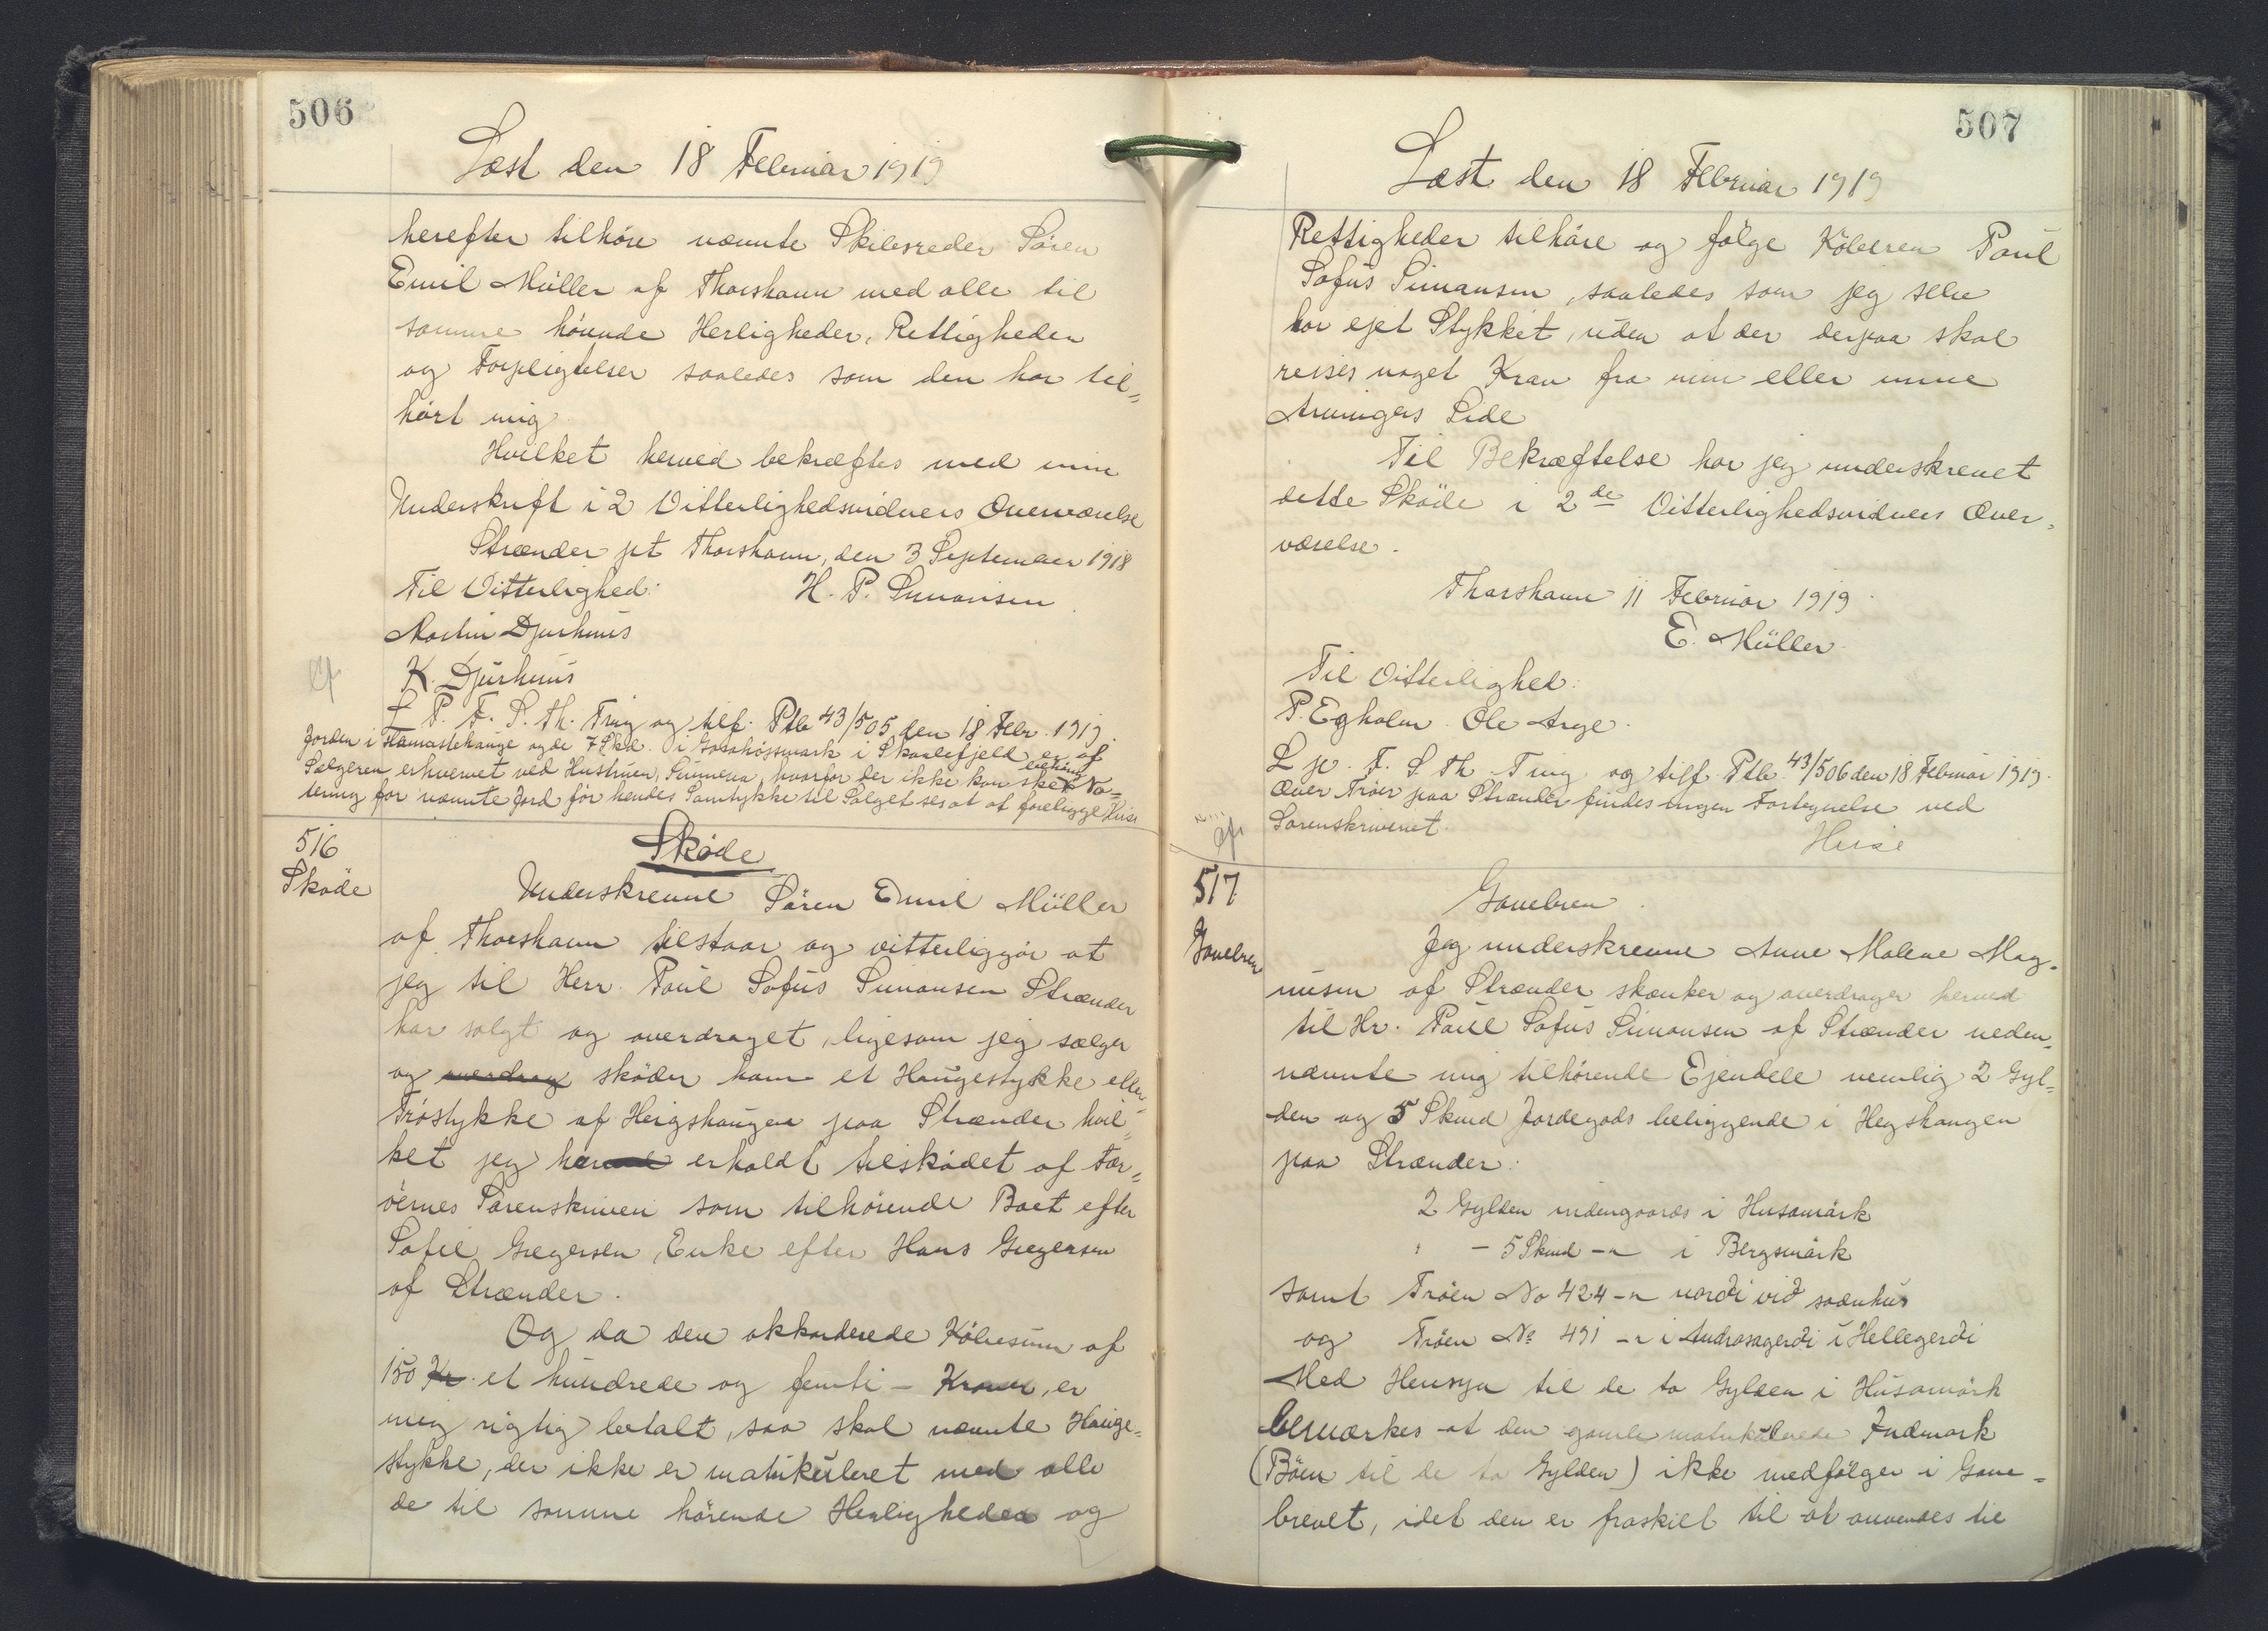 506
Læst den 18 Februar 1919
herefter tilhöre nævnte Skibsreder Sören
Emil Müller af Thorshavn med alle til
samme hörende Herligheder, Rettigheder
og Forpligtelser saaledes som den har til=
hört mig
Hvilket herved bekræftes med min
Underskrift i 2 Vitterlighedsvidners Overværelse
Strænder pt Thorshavn, den 3 September 1918
Til Vitterlighed: H. P. Simonsen
Martin Djurhuus
K. Djurhuus
L P. F. S. Th. Ting og tilf. Ptb 43/505 den 18 Febr. 1919.
Jorden i Hamastehauge og de 7 Skd. i Gosshöjsmark i Skaalefjeld er af
Sælgeren erhvervet ved Hustruen, Sunneva, hvorfor der ikke kan ske No-
tering for nævnte Jord för hendes Samtykke til Salget ses at foreligge Heise
516
Sköde
Sköde
Underskrevne Sören Emil Müller
af Thorshavn tilstaar og vitterliggör at
jeg til Herr. Poul Sofus Simonsen Strænder
har solgt og overdraget, ligesom jeg sælger
og overdrag skøder ham et Haugestykke eller
Tröstykke af Heigshaugen paa Strænder hvil=
ket jeg har erholdt tilsködet af Fær=
öernes Sorenskriver som tilhörende Boet efter
Sofie Gregersen, Enke efter Hans Gregersen
af Strænder.
Og da den akkorderede Köbesum af
150 Kr. et hundrede og femti - Kroner, er
mig rigtig betalt, saa skal nævnte Hauge=
stykke, der ikke er matrikuleret med alle
de til samme hörende Herligheder og
507
Læst den 18 Februar 1919
Rettigheder tilhöre og følge Köberen Poul
Sofus Simonsen, saaledes som jeg selv
har ejet Stykket, uden at der derpaa skal
reises noget Krav fra min eller mine
Arvingers Side
Til Bekræftelse har jeg underskrevet
dette Sköde i 2de Vitterlighedsvidners Over=
værelse.
Thorshavn 11 Februar 1919
E. Müller.
Til Vitterlighed:
P. Egholm. Ole Arge.
L p. F. S Th Ting og tilf. Ptb. 43/506 den 18 Februar 1919.
Over Tröer paa Strænder findes ingen Fortegnelse ved
Sorenskriveriet.
Heise
517
Gavebrev
Gavebrev.
Jeg underskrevne Anne Malene Mag=
nusen af Strænder skænker og overdrager herved
til Hr. Poul Sofus Simonsen af Strænder neden=
nævnte mig tilhörende Ejendele nemlig 2 Gyl=
den og 5 Skind Jordegods beliggende i Hegshaugen
paa Strænder:
2 Gylden indengaards i Husamörk
" - 5 Skind - " i Bergsmörk
samt Tröen No 424 - " nordi vid sodnhus
og Tröen No 491 - " i Andrasagerdi i Hellegerdi
Med Hensyn til de to Gylden i Husamörk
bemærkes at den gamle matrikulerede Indmark
(Böen til de to Gylden) ikke medfølger i Gave=
brevet, idet den er fraskilt til at anvendes til